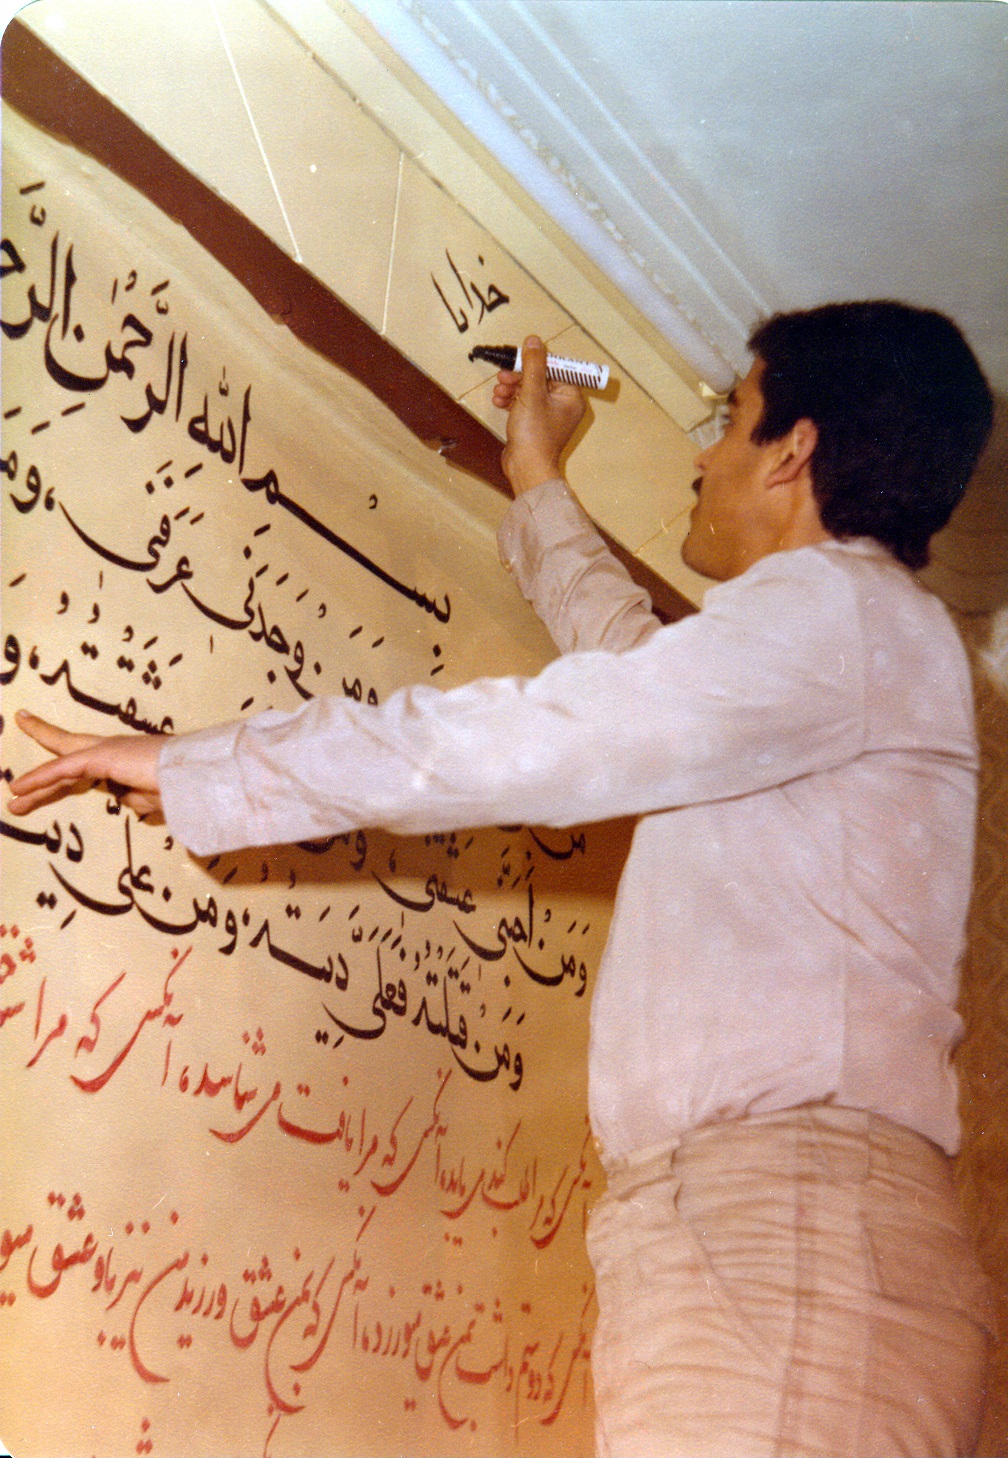 خدایا
بِسْمِ اللّٰهِ الرَّحْمٰنِ الرَّحـ
مَن وَمَنْ وَجَدَنی عَرَفَنی، وَمَـ
وَمَنْ أَحَبَّنی عَشَقَنی، وَمَن عَشَقْتُهُ، وَ
وَمَنْ قَتَلْتُهُ فَعَلَیَّ دِیَتُهُ، وَمَنْ عَلَیَّ دِیَتـ
آنکس که مرا طلب کند می یابد، آنکس که مرا یافت می شناسد، آنکس که مرا
آنکس که دوستم داشت بمن عشق میورزد، آنکس که بمن عشق ورزید من نیز باو عشق میو